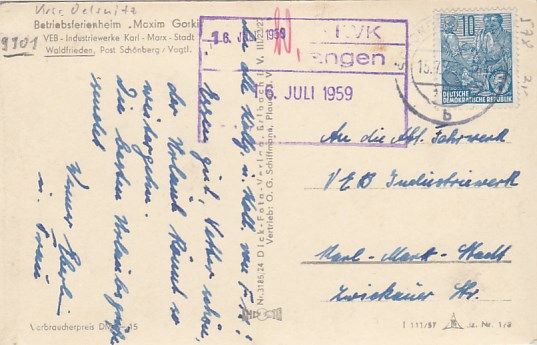 Krs. Oelsnitz
Betriebsferienheim „Maxim Gorki"
VEB - Industriewerke Karl - Marx - Stadt
Waldfrieden, Post Schönberg / Vogtl.
9901
16. JULI 1959
VK
ngen
16. JULI 1959
10
DEUTSCHE
DEMOKRATISCHE REPUBLIK
b
An die Abt. Fahrwerk
VEB Industriewerk
Karl-Marx-Stadt
Zwickauer Str.
Essen gut, Wetter schön,
der Urlaub könnt so
weitergehn.
Die besten Urlaubsgrüße
sendet
Werner
u. Frau
Nr. 3185/24 Dick-Foto-Verlag, Erlbach i. V. III/23/2
Vertrieb: O. G. Schiffmann, Plauen
Verbraucherpreis DM 0,15
I 111/57
Nr. 1/9